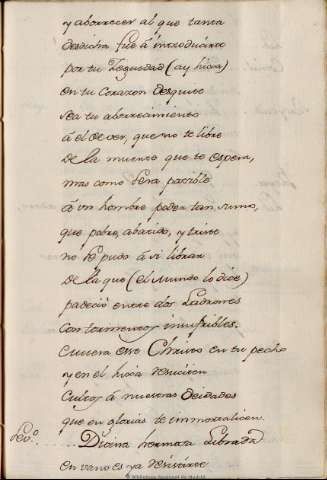 y aborrecer al que tanta
desdicha fue á introducirte
por tu ceguedad (ay hixa)
en tu corazon desquite
sea tu aborrecimiento
á el de ver, que no te libre
de la muerte que te espera,
mas como sera posible
á un hombre poder tan sumo,
que pobre, abatido, y triste
no se pudo á si librar
de la que (el Mundo lo dice)
padeció entre dos Ladrones
con tormentos insufribles.
Muera ese Christo en tu pecho
y en el, hixa
Cultos á nuestras Deidades
que en glorias te immortalicen.
Divina hermosa Librada
en vano es ya resistirte
Biblioteca Nacional de España